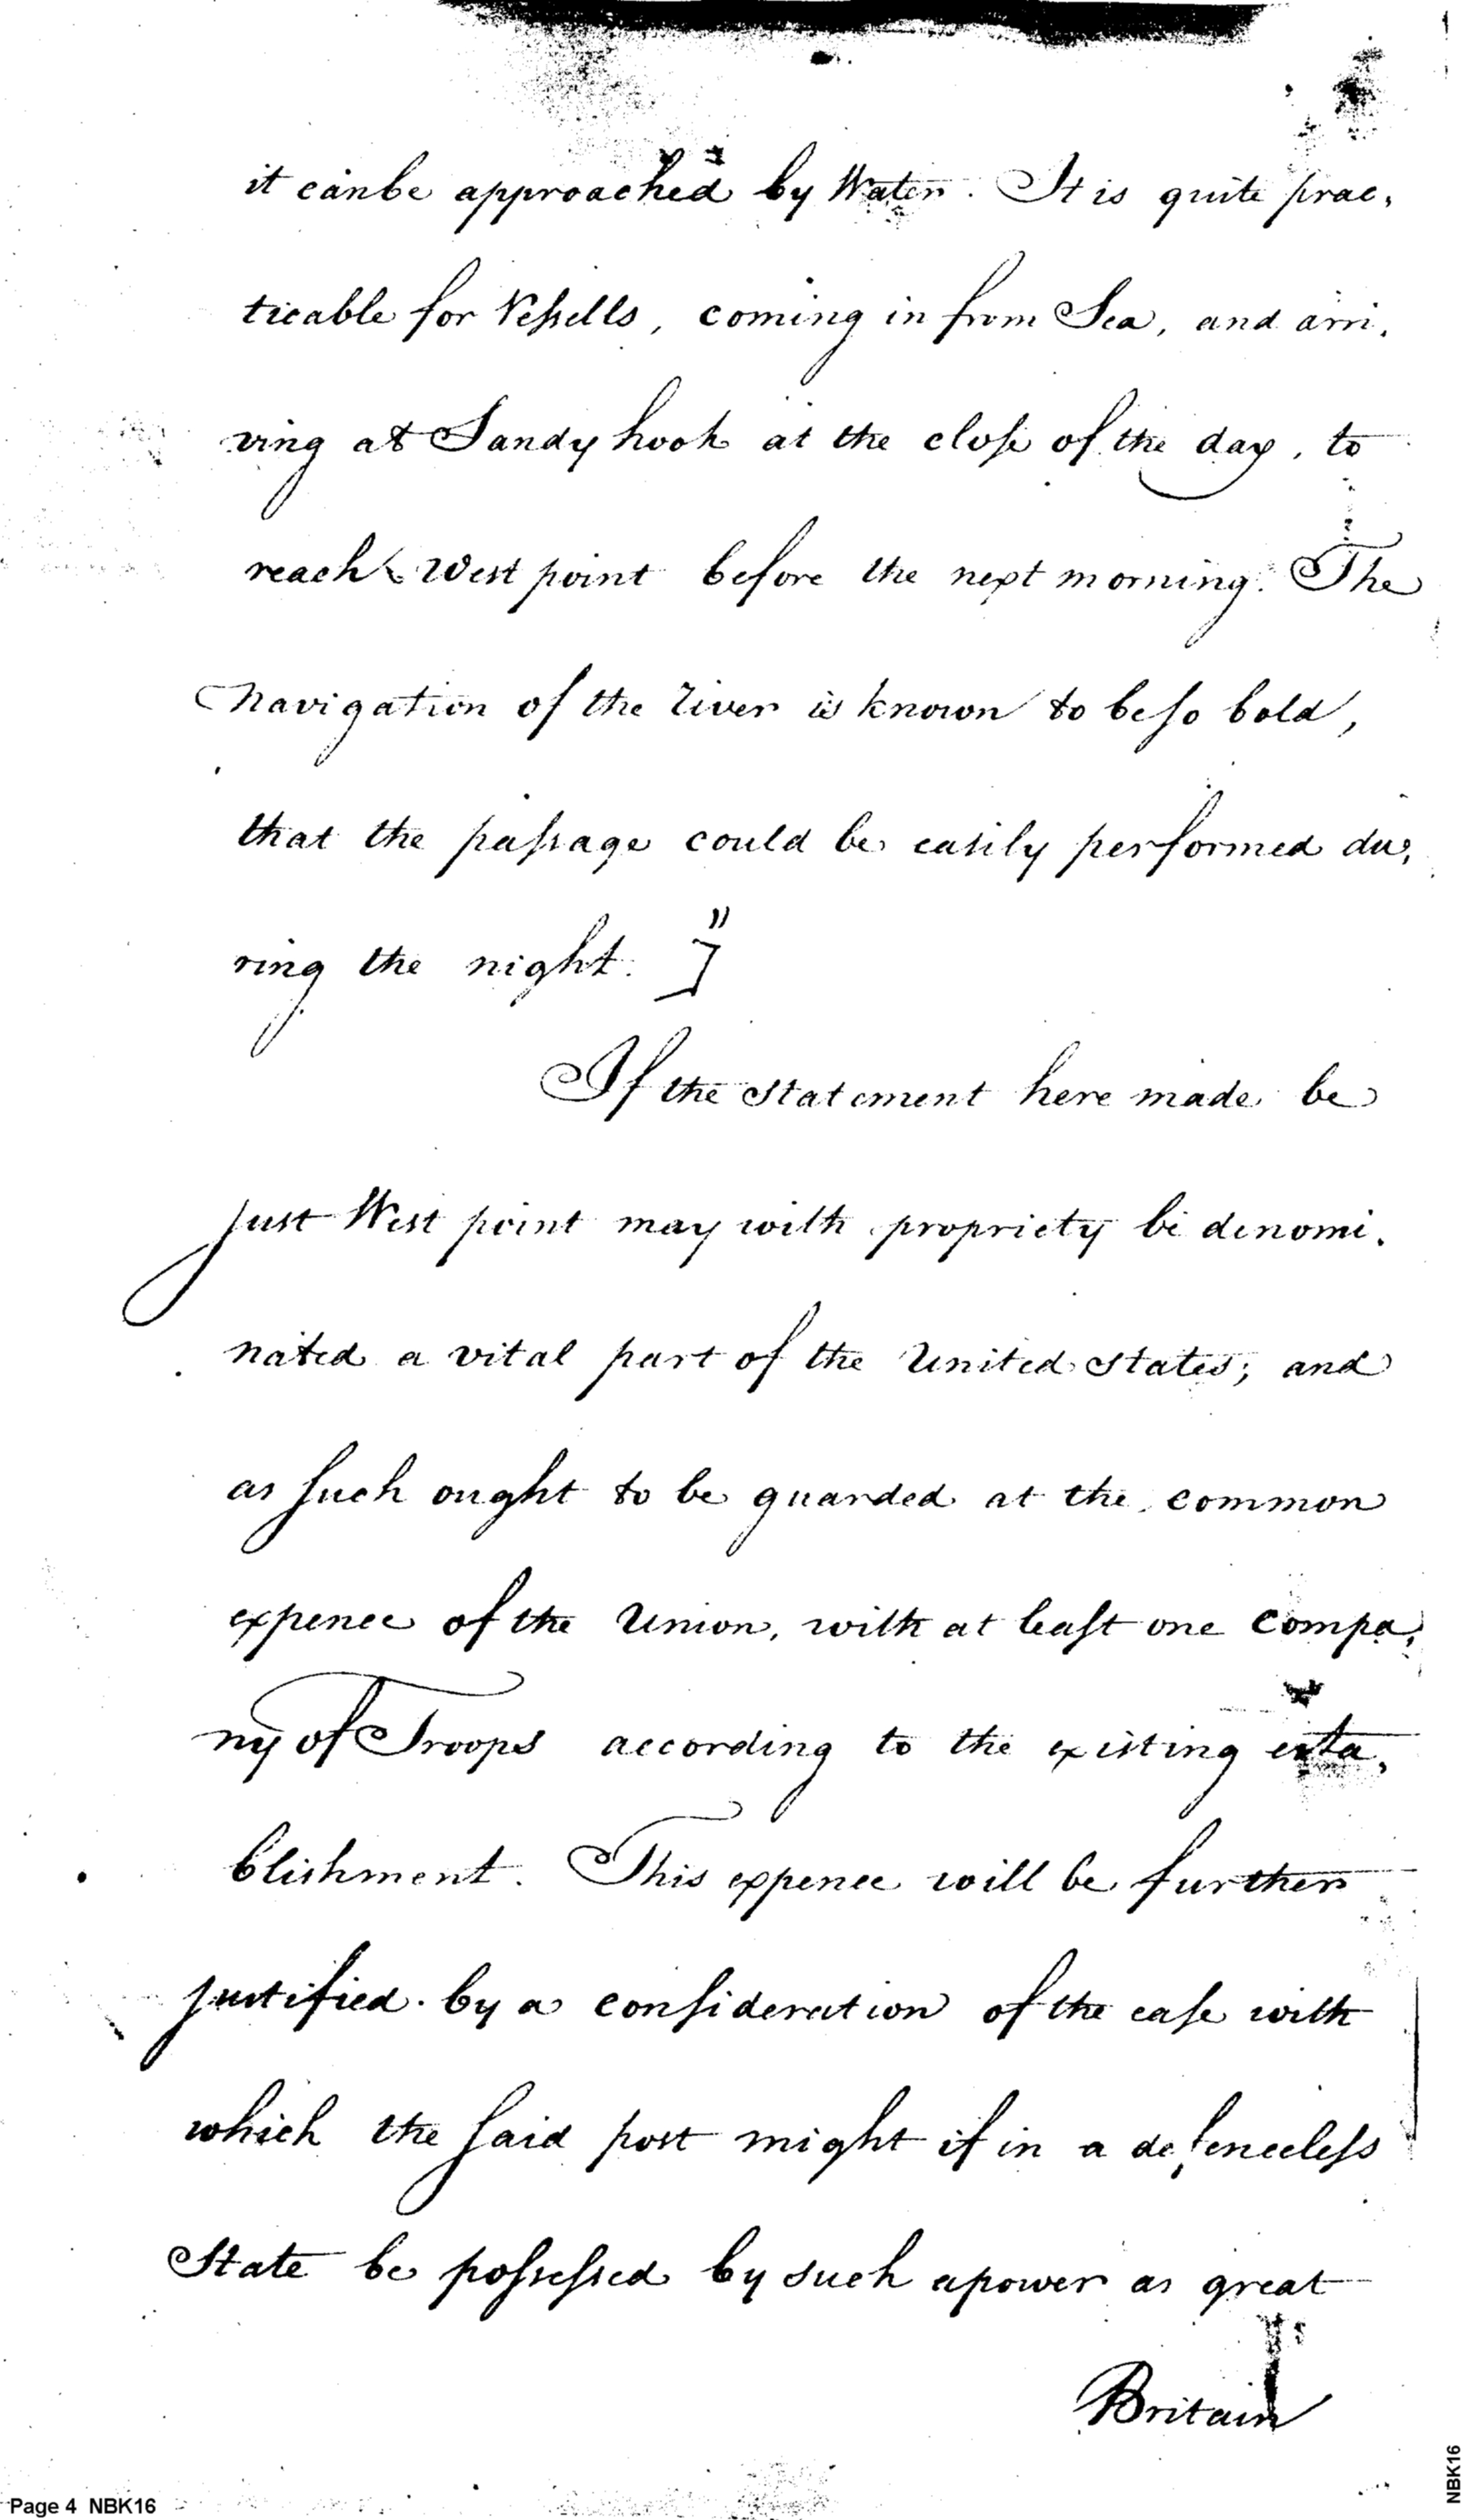 it can be approached by Water. It is quite prac,
ticable for Vessells, coming in from Sea, and arri,
ving at Sandy hook at the close of the day, to
reach West point before the next morning. The
navigation of the river is known to be so bold,
that the passage could be easily performed du,
ring the night."]
If the statement here made be
just West point may with propriety be denomi,
nated a vital part of the United States; and
as such ought to be guarded at the common
expence of the Union, with at least one compa,
ny of Troops according to the existing esta,
blishment. This expence will be further
justified by a consideration of the ease with
which the said post might if in a defenceless
State be possessed by such a power as great
Britain
Page 4 NBK16
NBK16